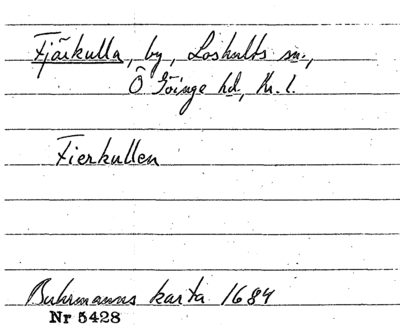 Fjärkulla, by, Loshults sn.,
Ö Göinge hd, Kr. l.
Fierkullen
Buhrmanns karta 1684
Nr 5428